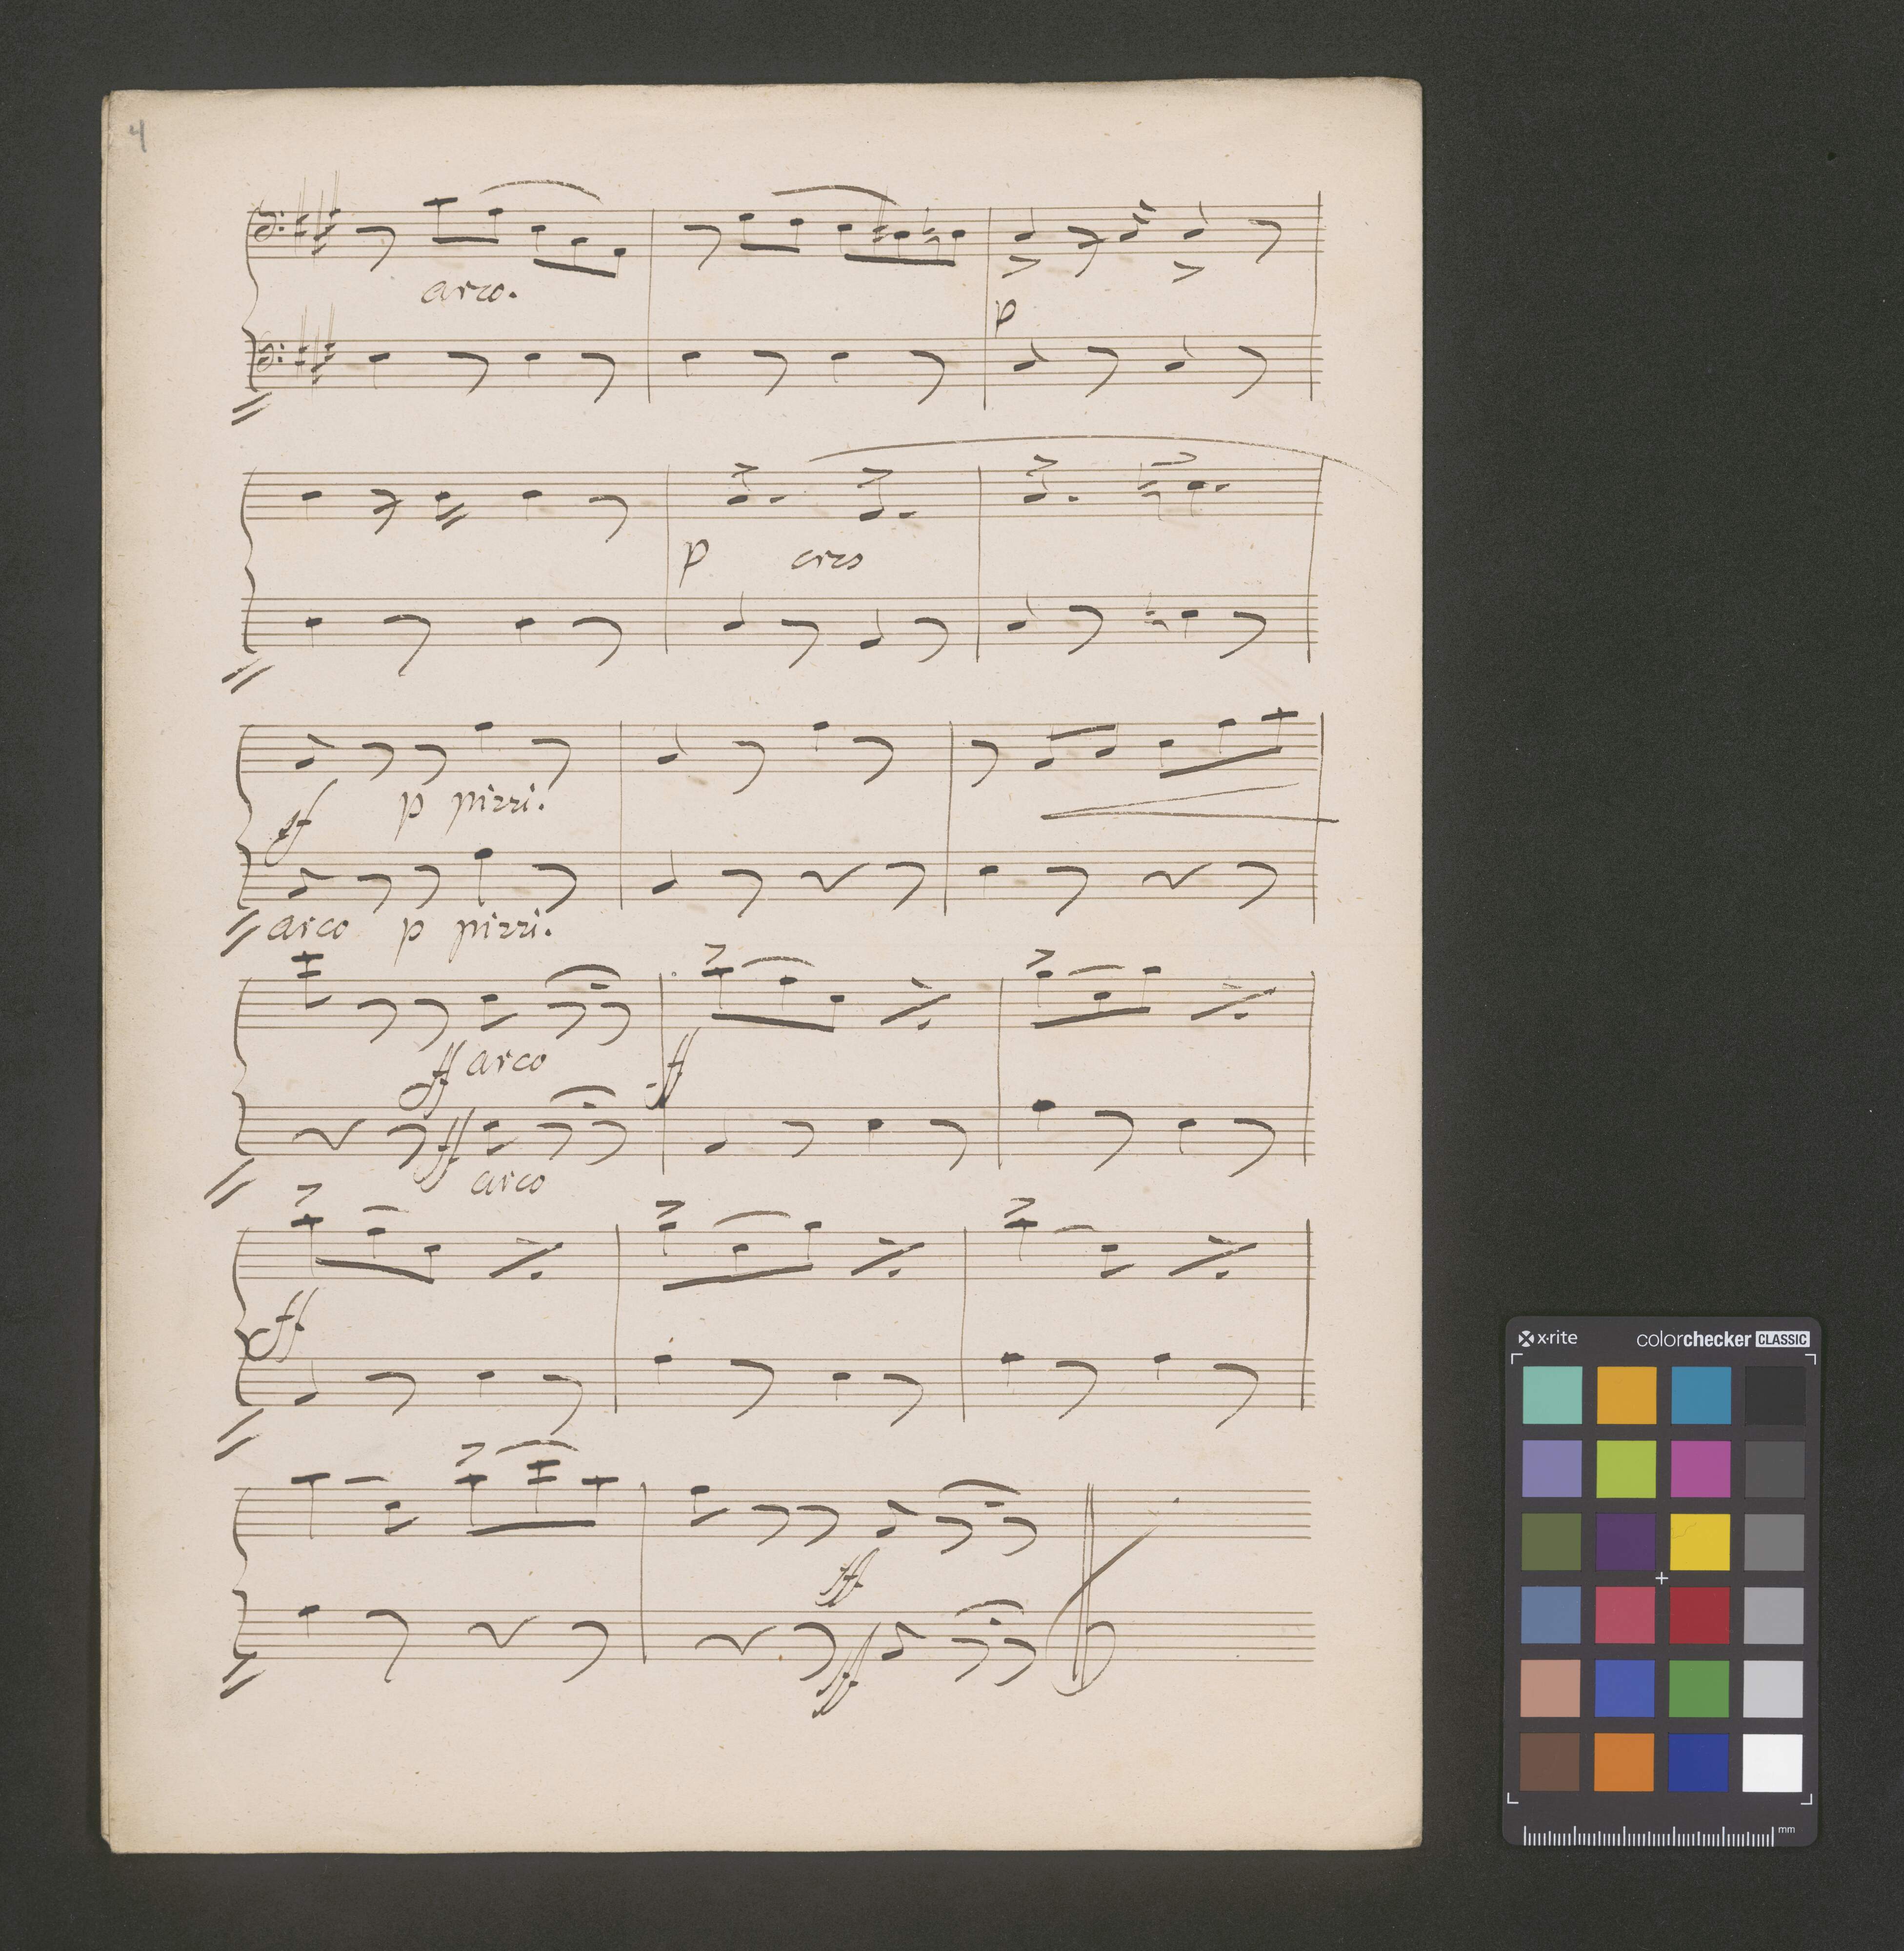 4
arco.
p
p cres
ff p pizzi.
arco p pizzi.
ff arco ff
ff
arco
ff
ff
ff
x-rite colorchecker CLASSIC
mm